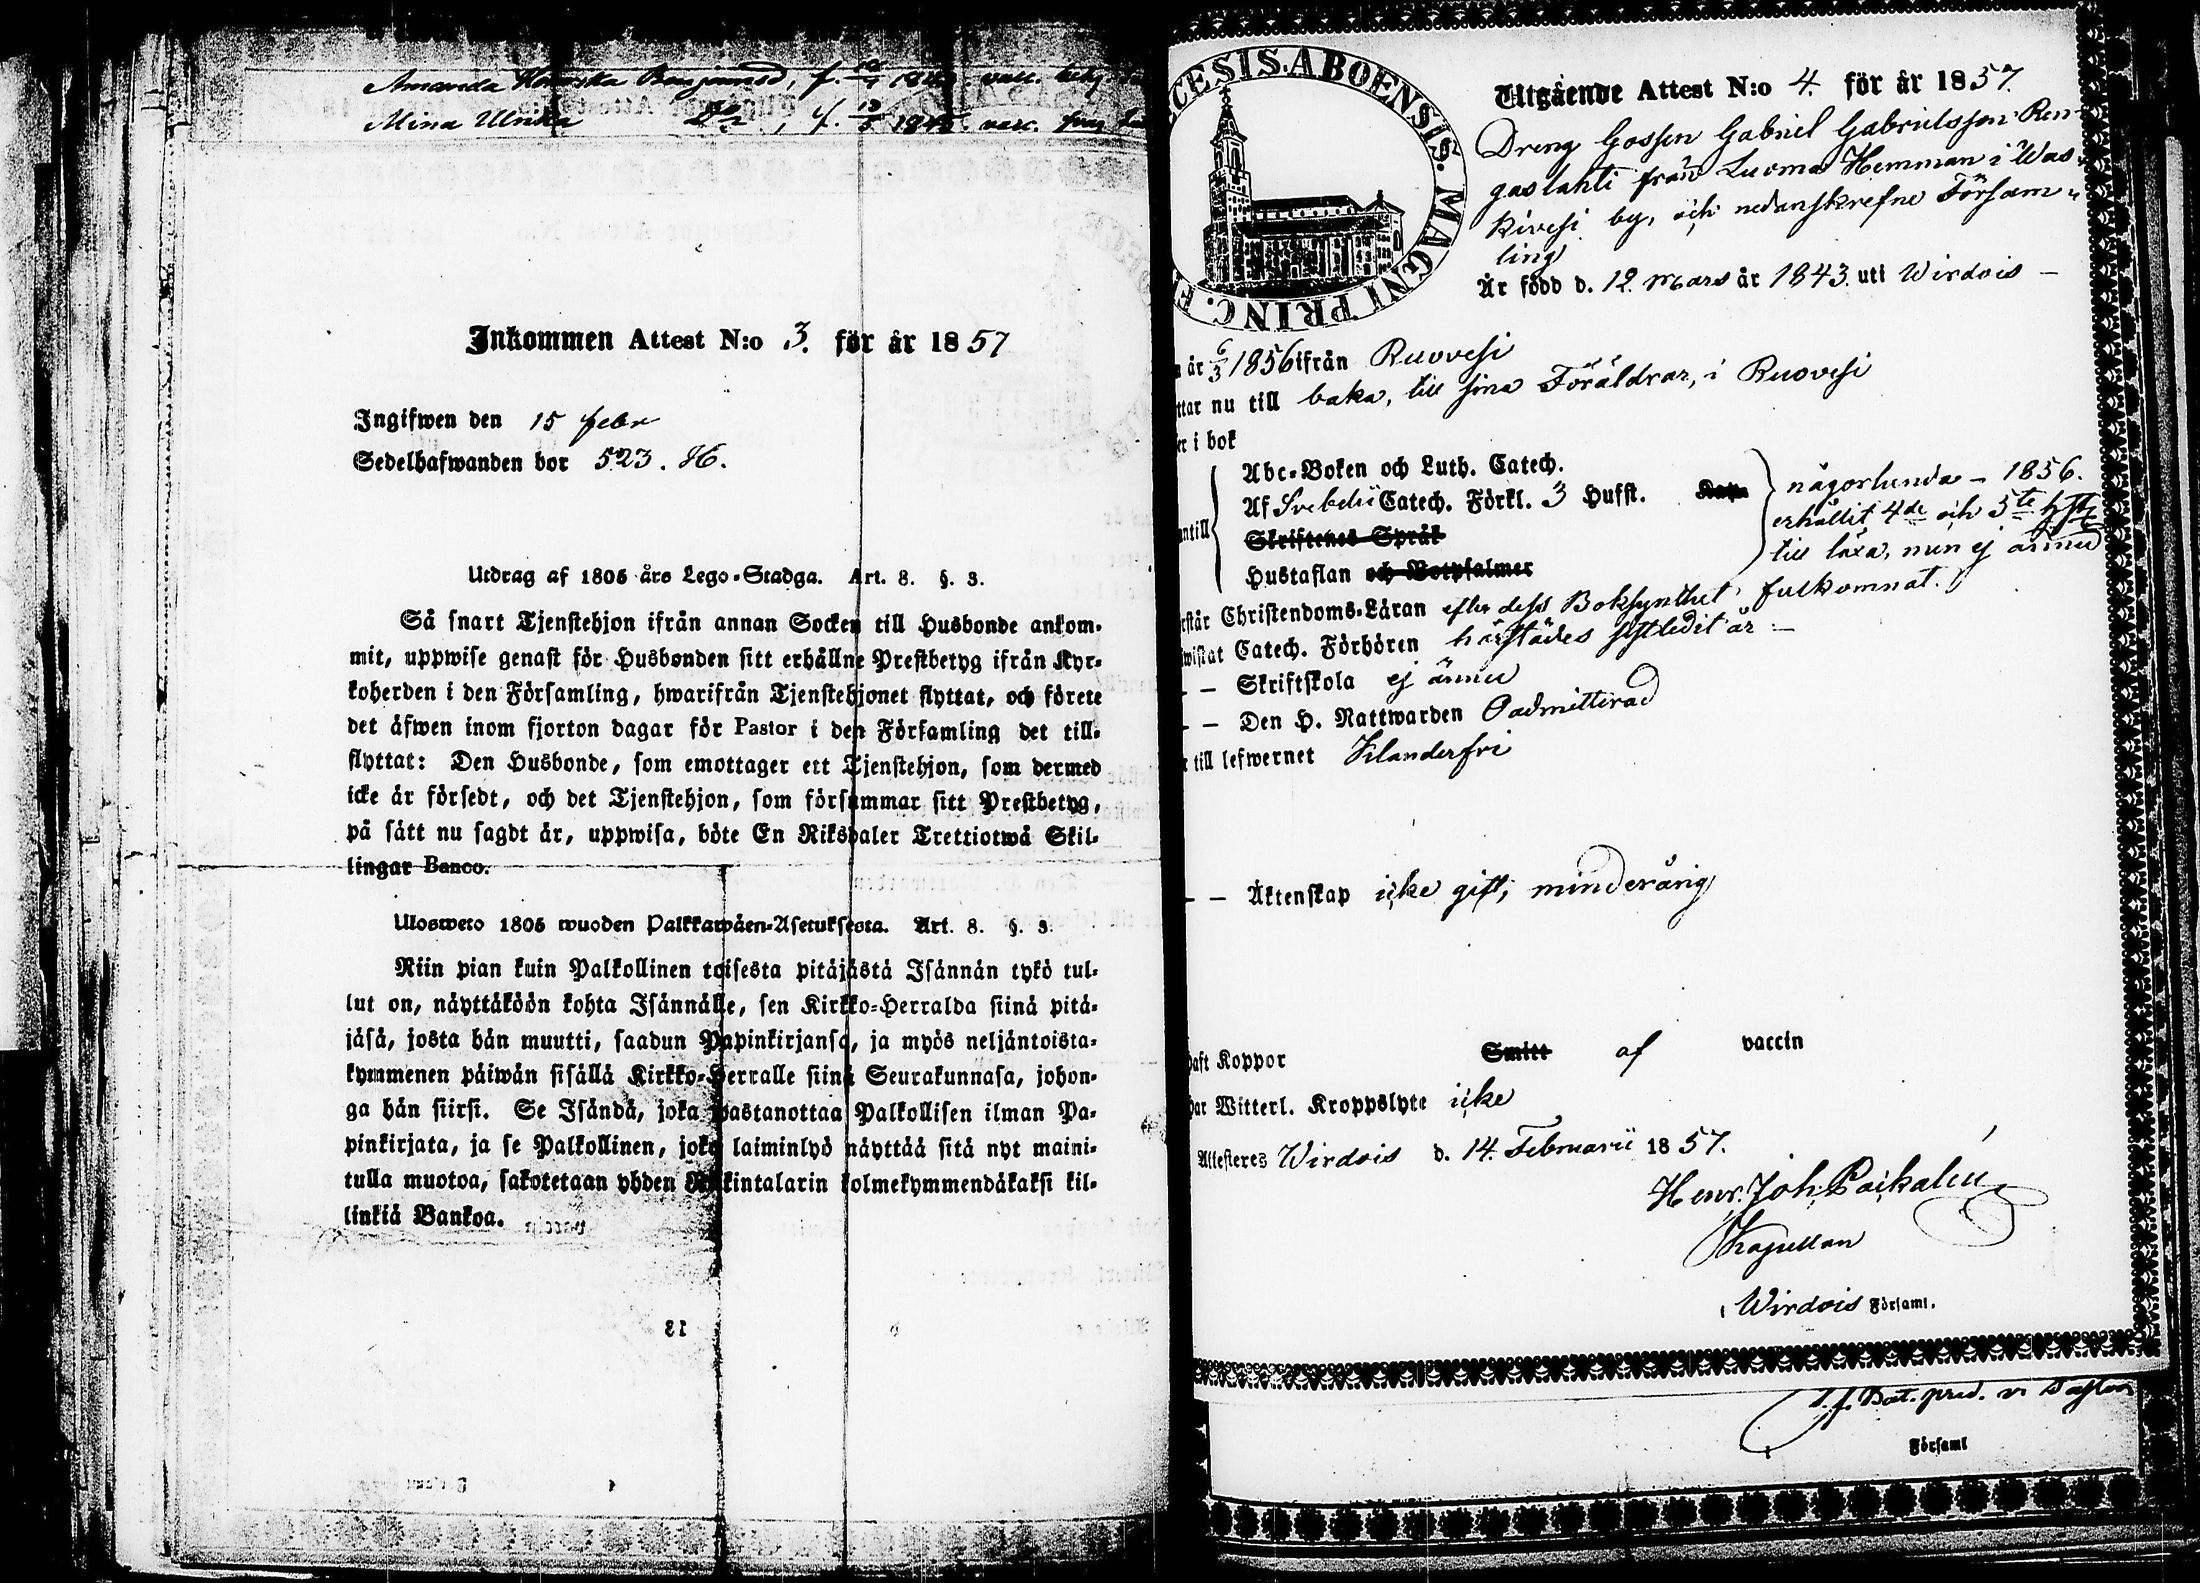 Amanda Benjamsd, f. 184 vacc.
Mina Ulrika Do, f. 1845 vacc.
Inkommen Attest N:o 3. för år 1857
Ingifwen den 15 febr
Sedelhafwanden bor 523. H.
Utdrag af 1805 års Lego-Stadga. Art. 8. §. 3.
Så snart Tjenstehjon ifrån annan Socken till Husbonde ankom-
mit, uppwise genast för Husbonden sitt erhållne Prestbetyg ifrån Kyr-
koherden i den Församling, hwarifrån Tjenstehjonet flyttat, och förete
det äfwen inom fjorton dagar för Pastor i den Församling det till-
flyttat: Den Husbonde, som emottager ett Tjenstehjon, som dermed
icke är försedt, och det Tjenstehjon, som försummar sitt Prestbetyg,
på sätt nu sagdt är, uppwisa, böte En Riksdaler Trettiotwå Skil-
lingar Banco.
Ulosweto 1805 wuoden Palkkawäen-Asetuksesta. Art. 8. §. 3.
Niin pian kuin Palkollinen toisesta pitäjästä Isännän tykö tul-
lut on, näyttäköön kohta Isännälle, sen Kirkko-Herralda siinä pitä-
jäsä, josta hän muutti, saadun Papinkirjansa, ja myös neljäntoista-
kymmenen päiwän sisällä Kirkko-Herralle siinä Seurakunnasa, johon-
ga hän siirsi. Se Isändä, joka wastanottaa Palkollisen ilman Pa-
pinkirjata, ja se Palkollinen, joka laiminlyö näyttää sitä nyt maini-
tulla muotoa, sakotetaan yhden Riikintalarin kolmekymmendäkaksi kil-
linkiä Bankoa.
CESIS. ABOENSIS. MAGNI PRINC. F
Utgående Attest N:o 4. för år 1857.
Dreng Gossen Gabriel Gabrielsson Ren-
gaslahti från Luoma Hemman i Was-
kivesi by, och nedanskrefne Försam-
ling
Är född d. 12. Mars år 1843. uti Wirdois –
år 6/3 1856 ifrån Ruovesi
ttar nu till baka, till sina Föräldrar, i Ruovesi
er i bok
Abc-Boken och Luth. Catech.
Af Svebelii Catech. Förkl. 3 Hufst.
Skriftenes Språk
Hustaflan och Botpsalmer
antill
någorlunda – 1856.
erhållit 4de och 5te hft
till läxa, men ej ännu
fulkomnat.
rstår Christendoms-Läran efter dess Boksynthet
wistat Catech. Förhören härstädes sistledit år –
– – Skriftskola ej ännu
– – Den H. Nattwarden Oadmitterad
r till lefwernet Klanderfri
– – Äktenskap icke gift; minderårig
haft Koppor Smitt af vaccin
har Witterl. Kroppslyte icke
Attesteres Wirdois d. 14. Februarii 1857.
Henr. Joh.
Kapellan
i Wirdois Församl.
Församl